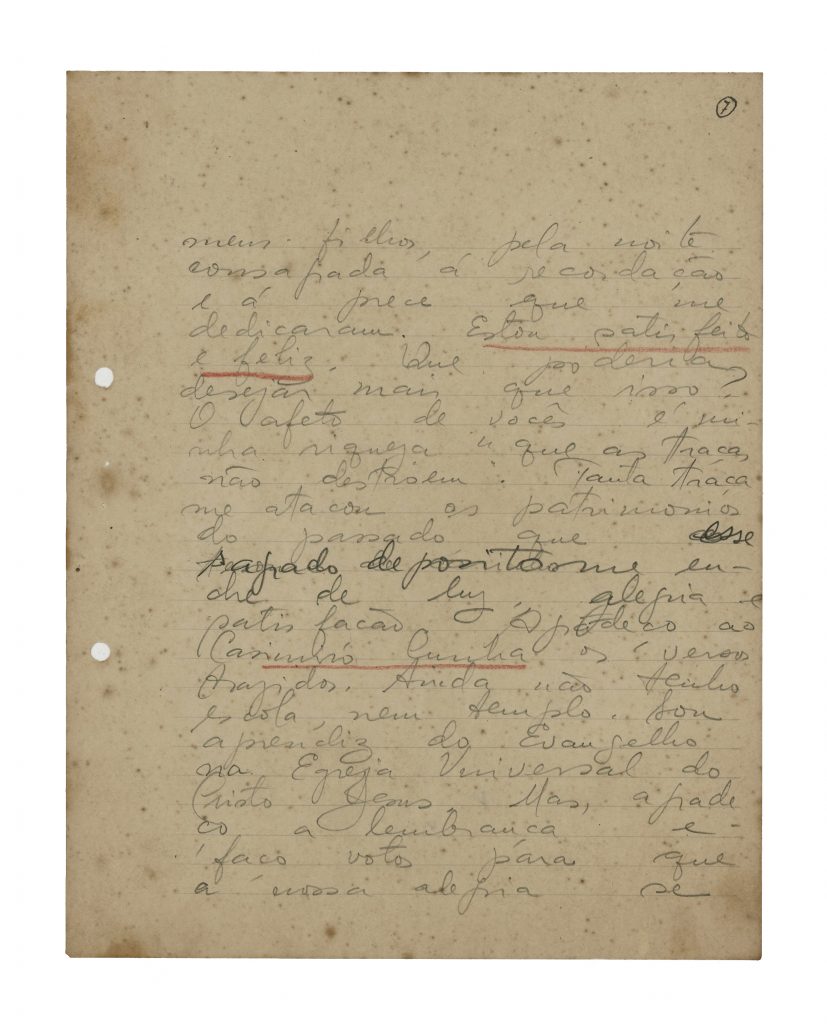 7
meus filhos, pela noite
consagrada á recordação
e á prece que me
dedicaram. Estou satisfeito
e feliz. Que poderia
desejar mais que isso?
O afeto de vocês é mi-
nha riqueza "que as traças
não destroem". Tanta traça
me atacou os patrimonios
do passado que esse
sagrado deposito me en-
che de luz, alegria e
satisfação. Agradeço ao
Casimiro Cunha os versos
trazidos. Ainda não tenho
escola, nem templo. Sou
aprendiz do Evangelho
na Egreja Universal do
Cristo Jesus. Mas, agrade
ço a lembrança e-
faço votos para que
a nossa alegria se